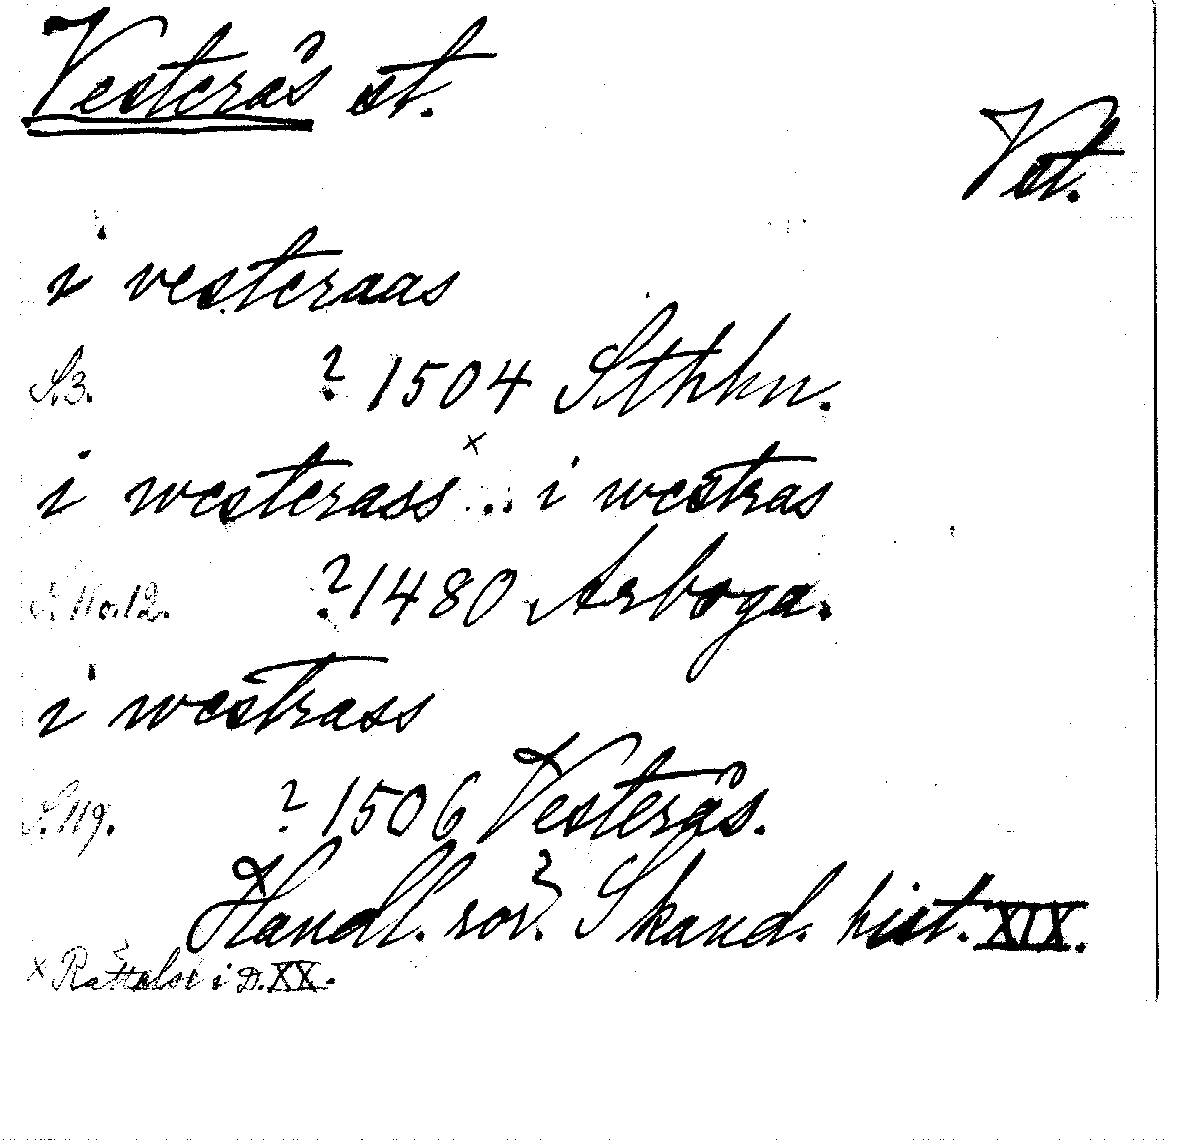 Vesterås st.
Vst.
i vesteraas
S. 3. ? 1504 Sthhn.
i westerass × .. i westras
S. 11 o. 12. ? 1480 Arboga.
i westrass
S. 119. ? 1506 Vesterås.
Handl. rör. Skand. hist. XIX.
× Rättelse i D. XX.